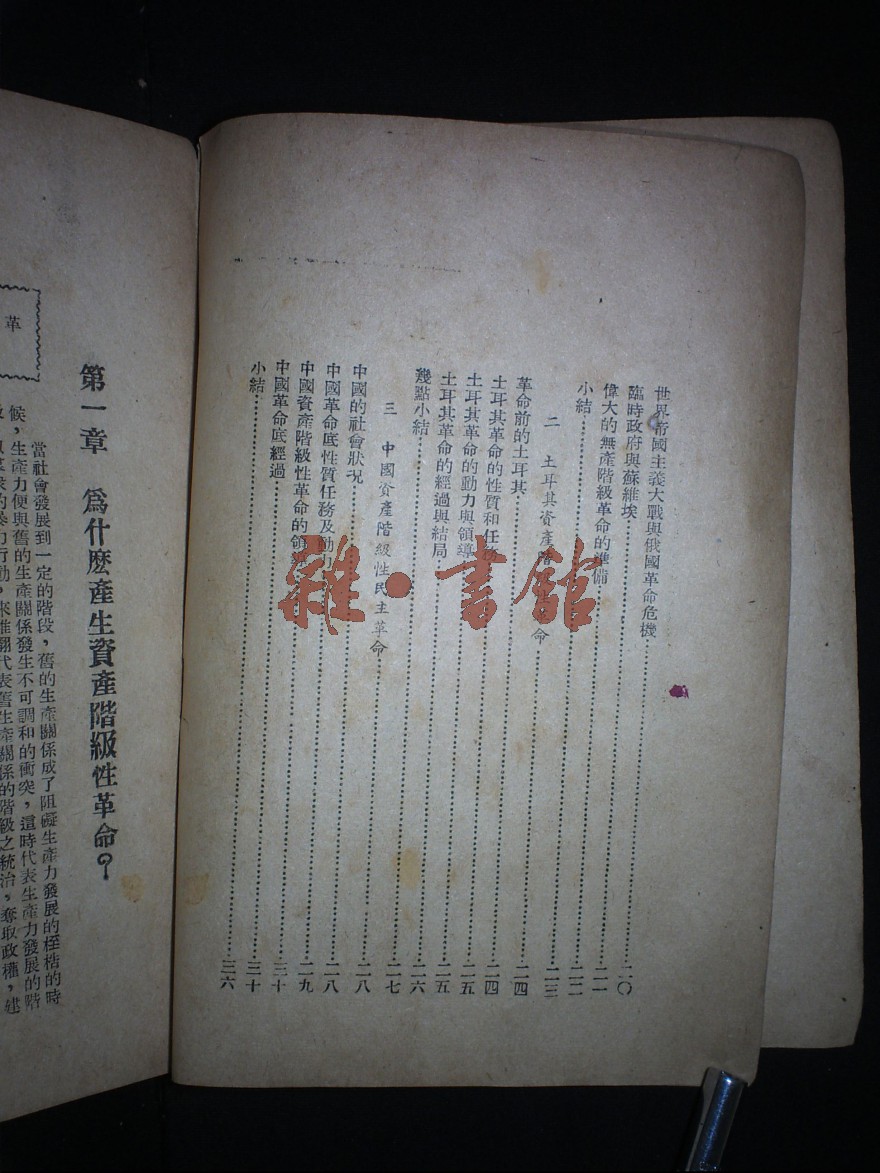 世界帝國主義大戰與俄國革命危機……二〇
臨時政府與蘇維埃……二一
偉大的無產階級革命的準備……二二
小結……二三
二 土耳其資產階 命……二四
革命前的土耳其……二四
土耳其革命的性質和任務……二五
土耳其革命的動力與領導……二五
土耳其革命的經過與結局……二六
幾點小結……二七
三 中國資產階級性民主革命……二八
中國的社會狀况……二八
中國革命底性質任務及動力……二九
中國資產階級性革命的領導……三十
中國革命底經過……三十
小結……三六
雜·書館
革
第一章 爲什麽產生資產階級性革命？
當社會發展到一定的階段，舊的生產關係成了阻礙生產力發展的桎梏的時
候，生產力便與舊的生產關係發生不可調和的衝突，這時代表生產力發展的階
行動，來推翻代表舊生產關係的階級之統治，奪取政權，建